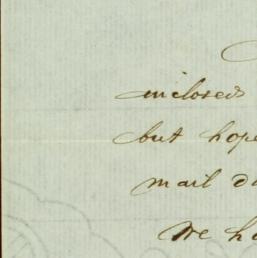 enclosed
but hope
mail d
We ha